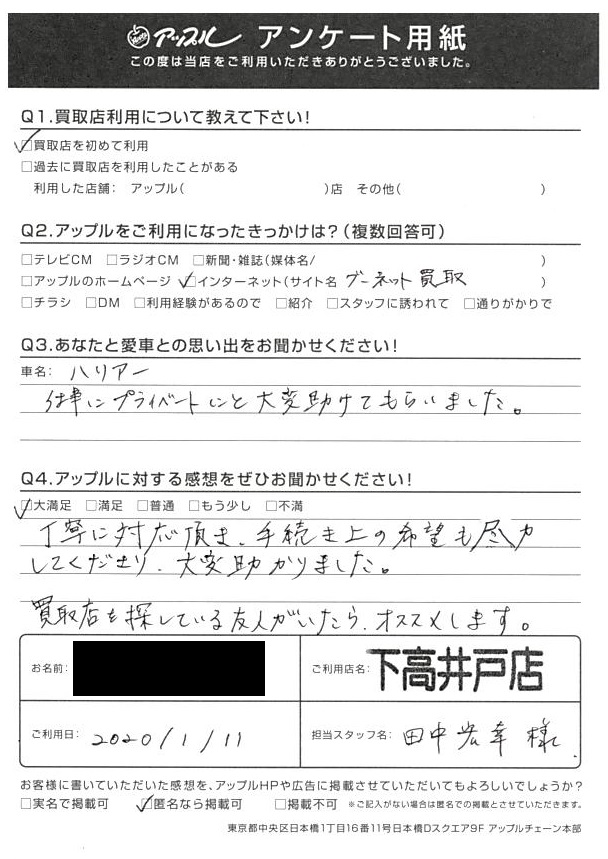 アップル アンケート用紙
この度は当店をご利用いただきありがとうございました。
Q1.買取店利用について教えて下さい!
☑買取店を初めて利用
□過去に買取店を利用したことがある
利用した店舗: アップル( )店 その他( )
Q2.アップルをご利用になったきっかけは?(複数回答可)
□テレビCM □ラジオCM □新聞・雑誌(媒体名/ )
□アップルのホームページ ☑インターネット(サイト名 グーネット買取 )
□チラシ □DM □利用経験があるので □紹介 □スタッフに誘われて □通りがかりで
Q3.あなたと愛車との思い出をお聞かせください!
車名: ハリアー
仕事にプライベートにと大変助けてもらいました。
Q4.アップルに対する感想をぜひお聞かせください!
☑大満足 □満足 □普通 □もう少し □不満
丁寧に対応頂き、手続き上の希望も尽力
してくださり、大変助かりました。
買取店を探している友人がいたら、オススメします。
お名前:
ご利用店名: 下高井戸店
ご利用日: 2020/1/11
担当スタッフ名: 田中宏幸 様
お客様に書いていただいた感想を、アップルHPや広告に掲載させていただいてもよろしいでしょうか?
□実名で掲載可 ☑匿名なら掲載可 □掲載不可 ※ご記入がない場合は匿名での掲載とさせていただきます。
東京都中央区日本橋1丁目16番11号日本橋Dスクエア9F アップルチェーン本部